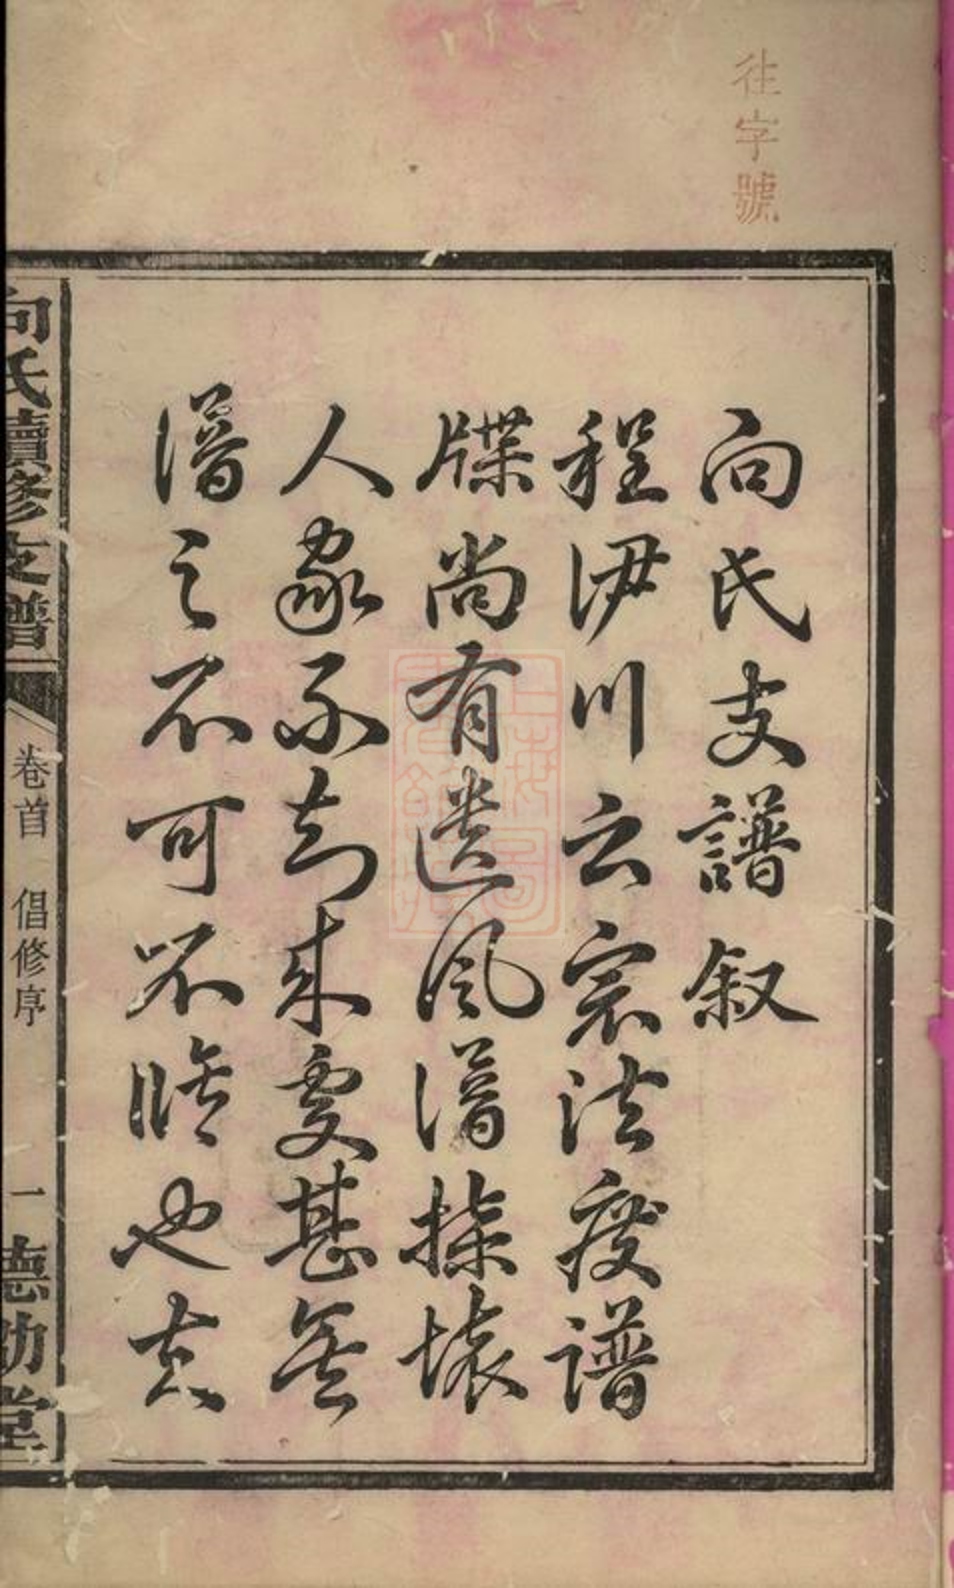 往字號
向氏支譜叙
程伊川云宗法廢譜
牒尚有遺風譜壞
人家不知来處甚矣
譜之不可不脩也
向氏續修支譜
卷首 倡修序 一